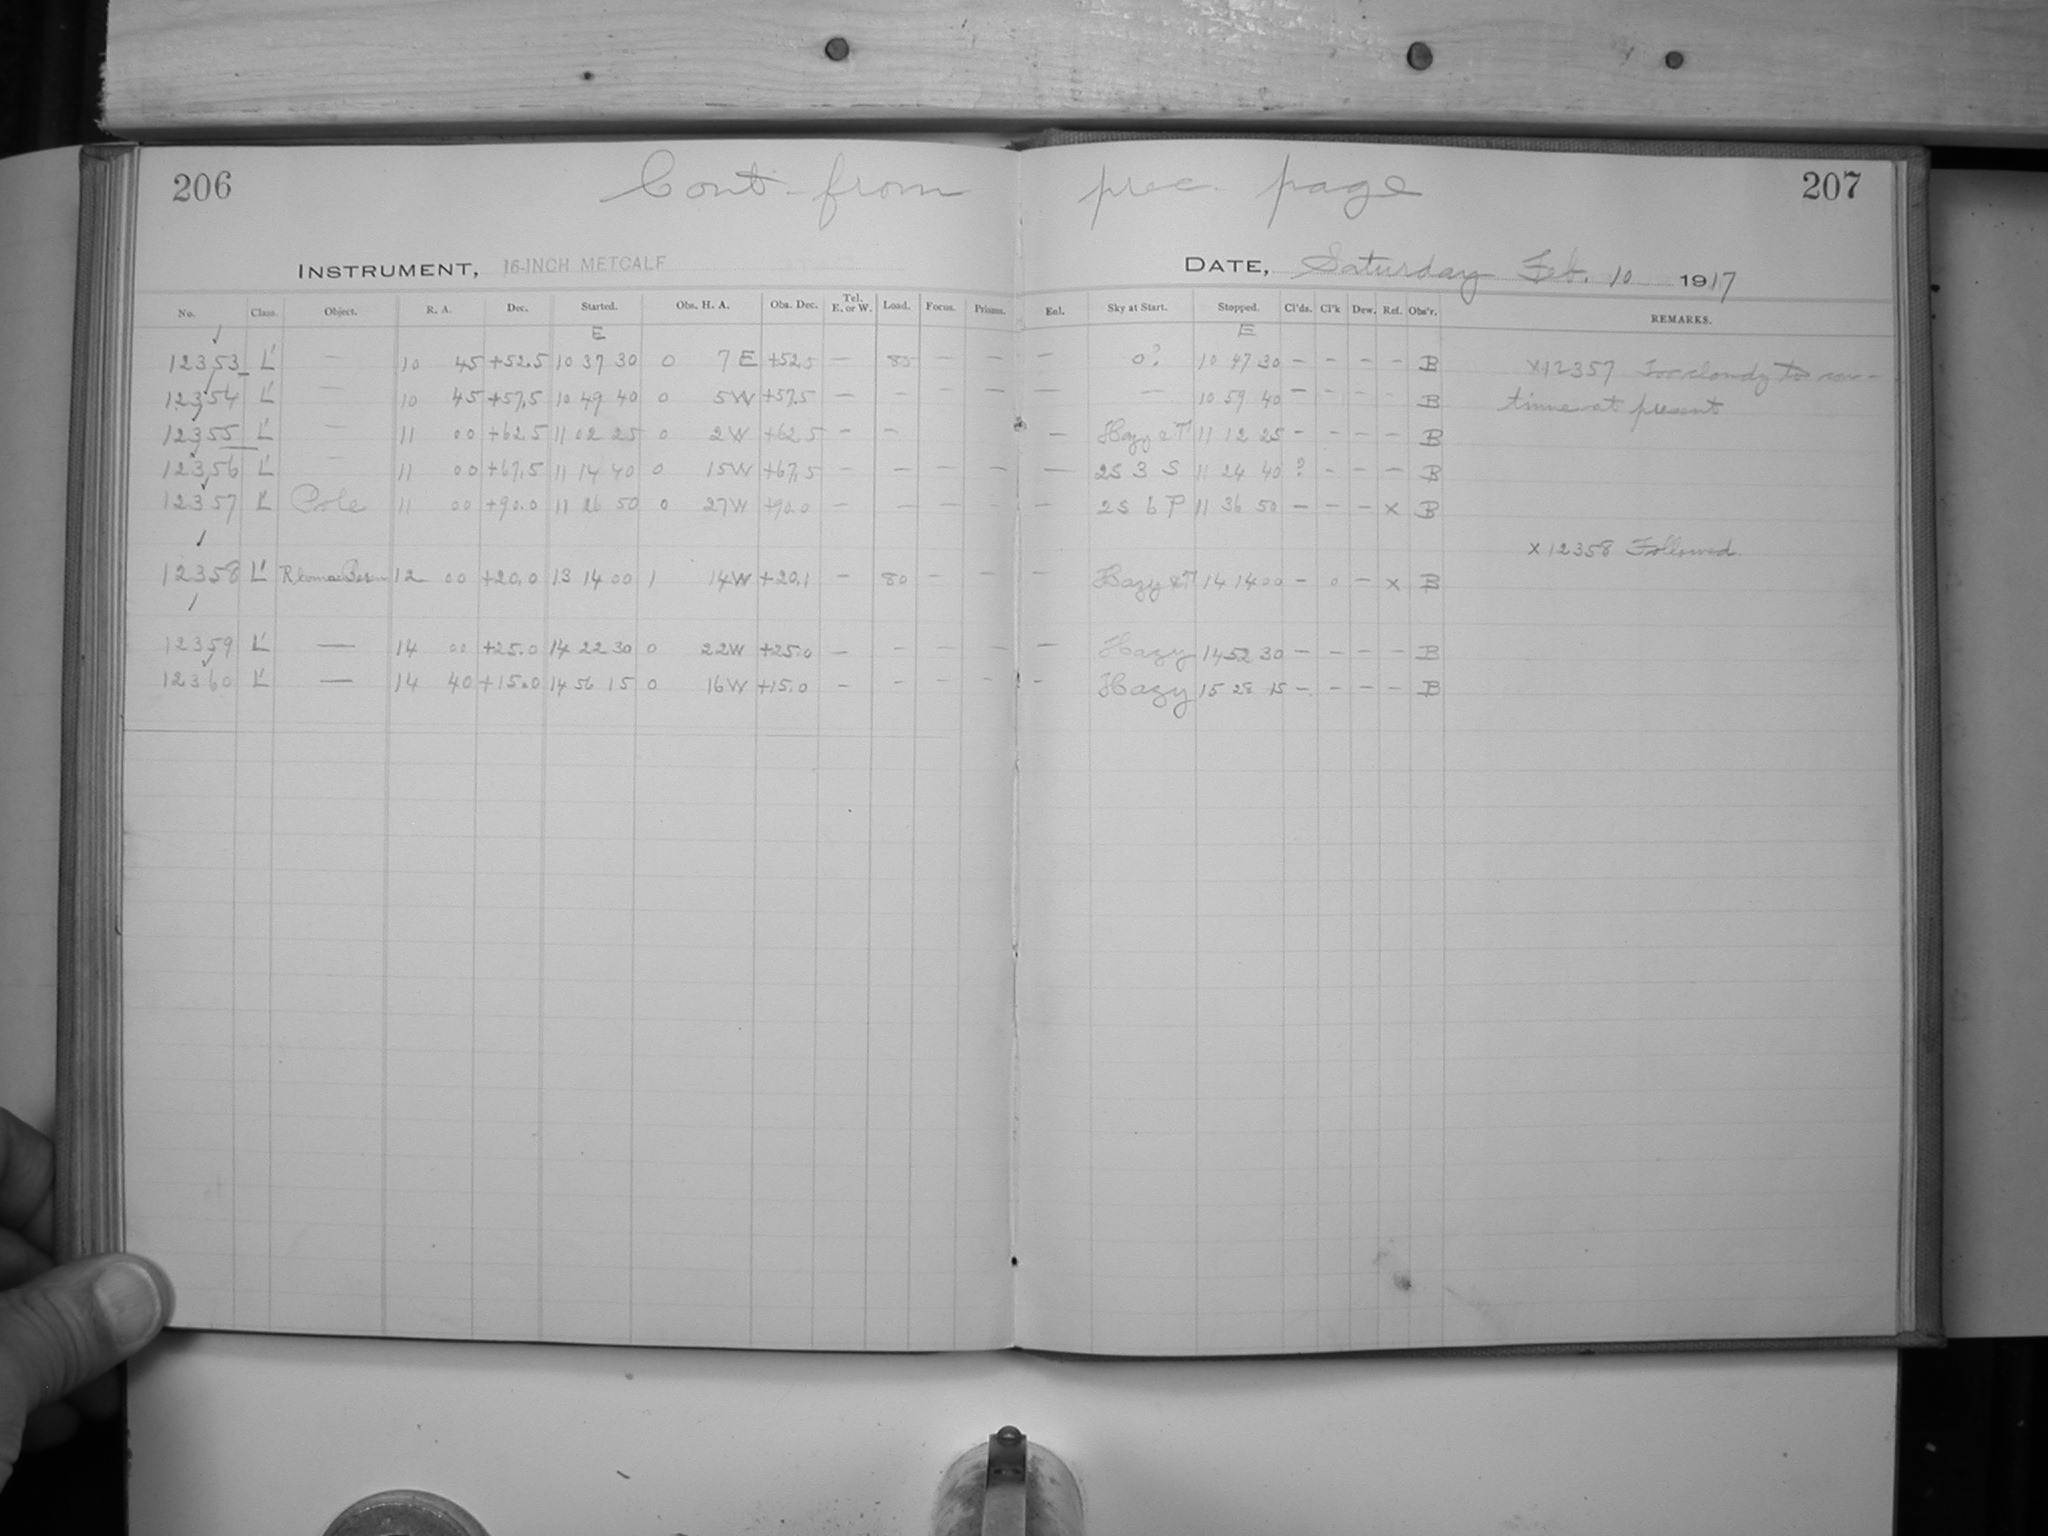 206 Cont. from prec. page 207
INSTRUMENT, 16-INCH METCALF DATE, Saturday Feb. 10 1917
No. Class. Object. R. A. Dec. Started. Obs. H. A. Obs. Dec. Tel. E. or W. Load. Focus. Prisms. Enl. Sky at Start. Stopped. Cl'ds. Cl'k Dew. Ref. Obs'r. REMARKS.
E E
12353 L' — 10 45 +52.5 10 37 30 0 7 E +52.5 — 80 — — — 0? 10 47 30 — — — — B X12357 Too cloudy to con-
12354 L' — 10 45 +57.5 10 49 40 0 5W +57.5 — — — — — — 10 59 40 — — — — B tinue at present
12355 L' — 11 00 +62.5 11 02 25 0 2W +62.5 — — — Hazy 11 12 25 — — — — B
12356 L' — 11 00 +67.5 11 14 40 0 15W +67.5 — — — — — 2S 3 S 11 24 40 ? — — — B
12357 L' Pole 11 00 +90.0 11 26 50 0 27W +90.0 — — — — — 2S 6 P 11 36 50 — — — x B
X12358 Followed.
12358 L' 12 00 +20.0 13 14 00 1 14W +20.1 — 80 — — — Hazy 14 14 00 — 0 — x B
12359 L' — 14 00 +25.0 14 22 30 0 22W +25.0 — — — — — Hazy 14 52 30 — — — — B
12360 L' — 14 40 +15.0 14 56 15 0 16W +15.0 — — — — — Hazy 15 28 15 — — — — B